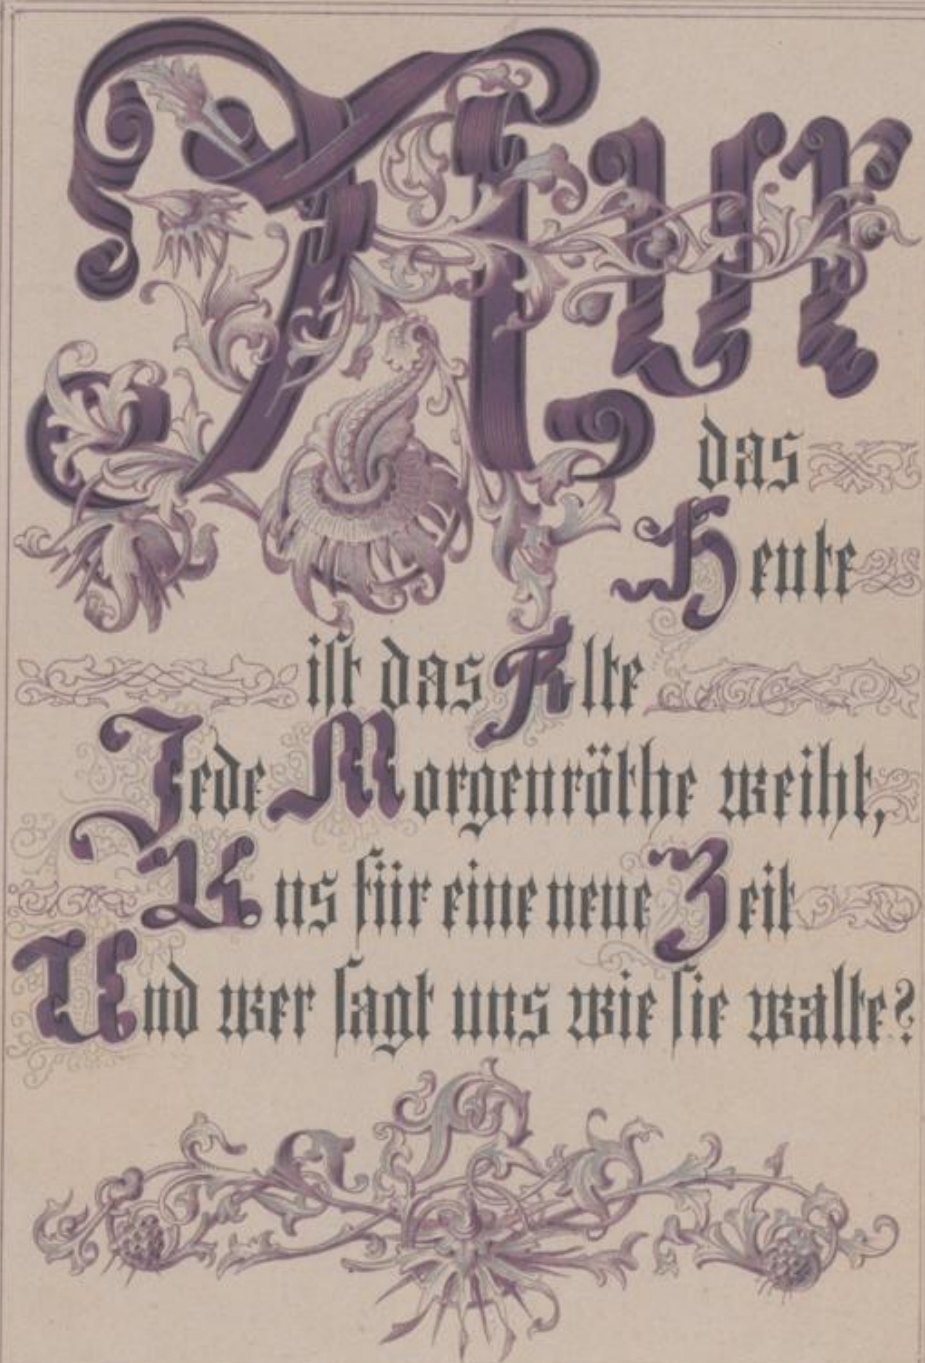 Nur
das
Heute
ist das Alte
Jede Morgenröthe weiht,
Uns für eine neue Zeit
Und wer sagt uns wie sie walte?